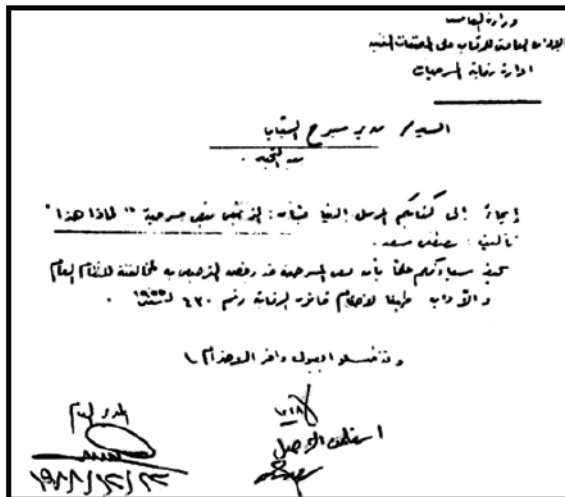 وزارة الثقافة
الإدارة العامة للرقابة على المصنفات الفنية
ادارة رقابة المسرحيات
السيد / مدير مسرح الشباب
بعد التحية .
إيماءً إلى كتابكم المرسل الينا بشأن : نص مسرحية " لماذا هذا "
تأليف : مصطفى سعد .
نحيط سيادتكم علمًا بأن نص المسرحية قد رفض الترخيص به لمخالفته للنظام العام
و الآداب طبقا لأحكام قانون الرقابة رقم ٤٣٠ لسنة ١٩٥٥ .
وتفضلوا بقبول وافر الاحترام ،
المدير العام
استلمت الأصل